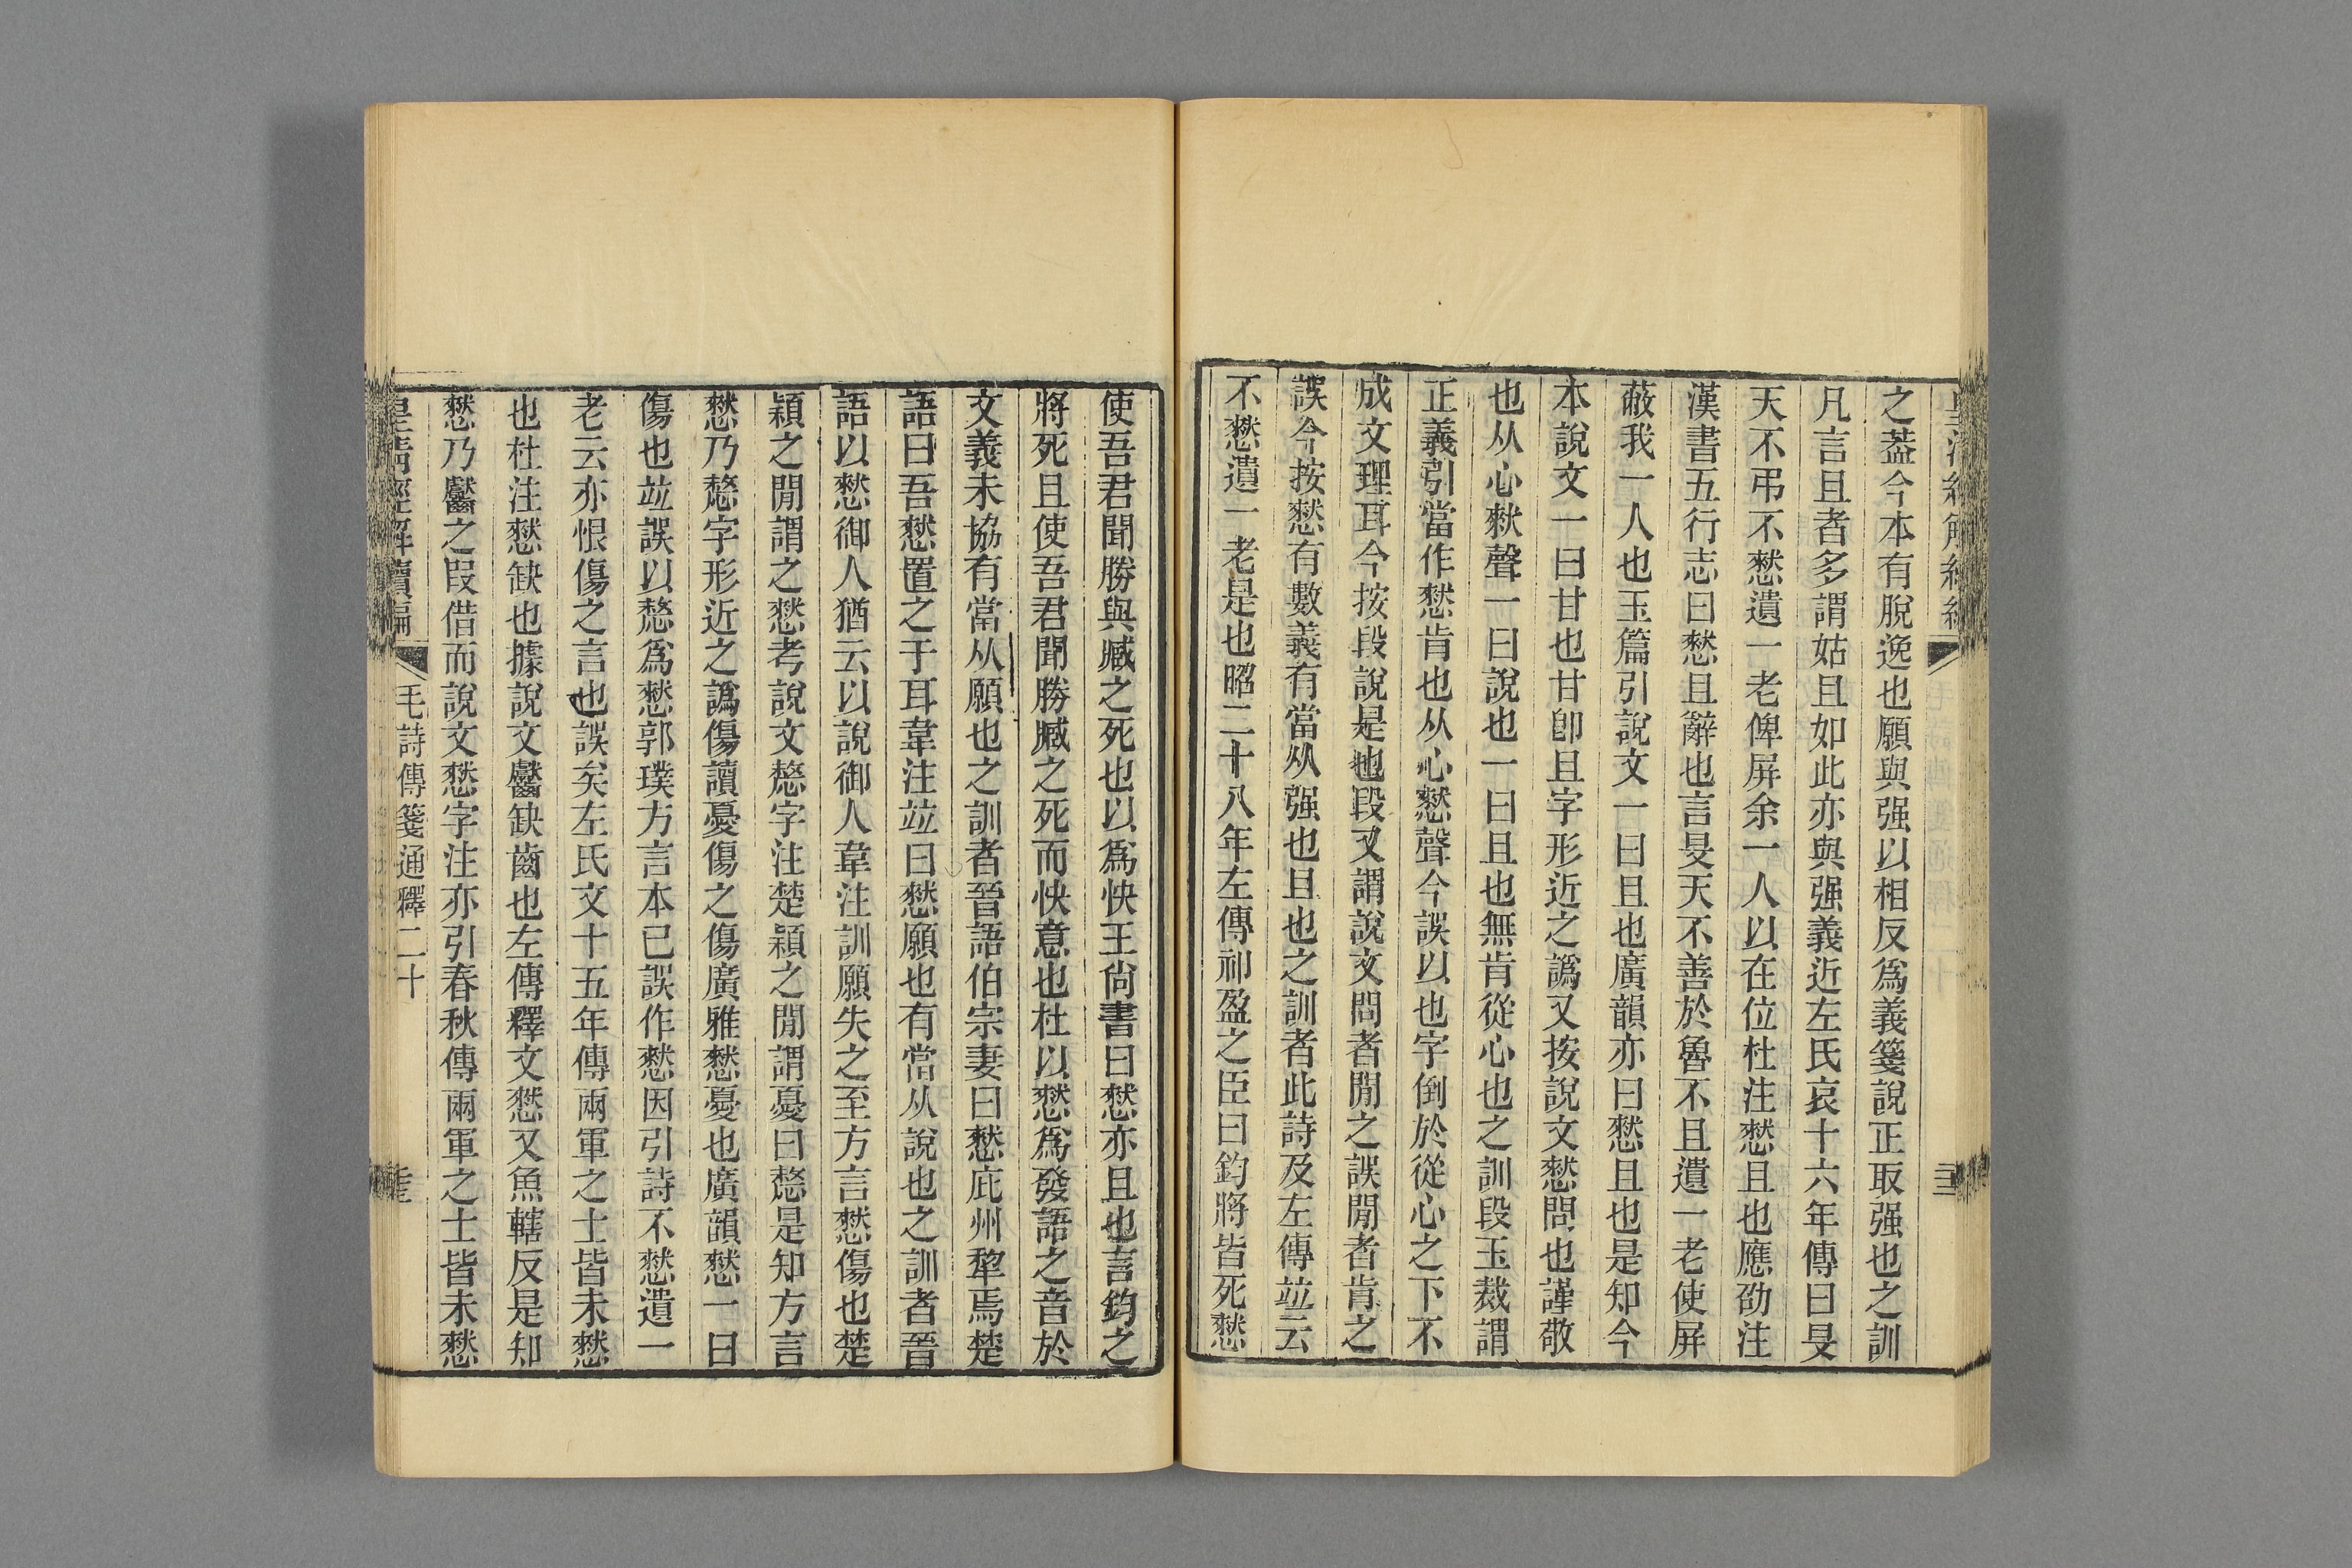 之葢今本有脫逸也願與强以相反爲義箋說正取强也之訓
凡言且者多謂姑且如此亦與强義近左氏哀十六年傳曰旻
天不弔不憖遺一老俾屏余一人以在位杜注憖且也應劭注
漢書五行志曰憖且辭也言旻天不善於魯不且遺一老使屏
蔽我一人也玉篇引說文一曰且也廣韻亦曰憖且也是知今
本說文一曰甘也甘卽且字形近之譌又按說文憖問也謹敬
也从心猌聲一曰說也一曰且也無肯從心也之訓段玉裁謂
正義引當作憖肯也从心憖聲今誤以也字倒於從心之下不
成文理耳今按段說是也段又謂說文問者閒之誤閒者肯之
誤今按憖有數義有當从强也且也之訓者此詩及左傳竝云
不憖遺一老是也昭二十八年左傳祁盈之臣曰鈞將皆死憖
使吾君聞勝與臧之死也以爲快王尙書曰憖亦且也言鈞之
將死且使吾君聞勝臧之死而快意也杜以憖爲發語之音於
文義未協有當从願也之訓者晉語伯宗妻曰憖庇州犂焉楚
語曰吾憖置之于耳韋注竝曰憖願也有當从說也之訓者晉
語以憖御人猶云以說御人韋注訓願失之至方言憖傷也楚
潁之閒謂之憖考說文慭字注楚潁之閒謂憂曰慭是知方言
憖乃慭字形近之譌傷讀憂傷之傷廣雅憖憂也廣韻憖一曰
傷也竝誤以慭爲憖郭璞方言本已誤作憖因引詩不憖遺一
老云亦恨傷之言也誤矣左氏文十五年傳兩軍之士皆未憖
也杜注憖缺也據說文齾缺齒也左傳釋文憖又魚轄反是知
憖乃齾之叚借而說文憖字注亦引春秋傳兩軍之士皆未憖
皇淸經解續編
毛詩傳箋通釋二十